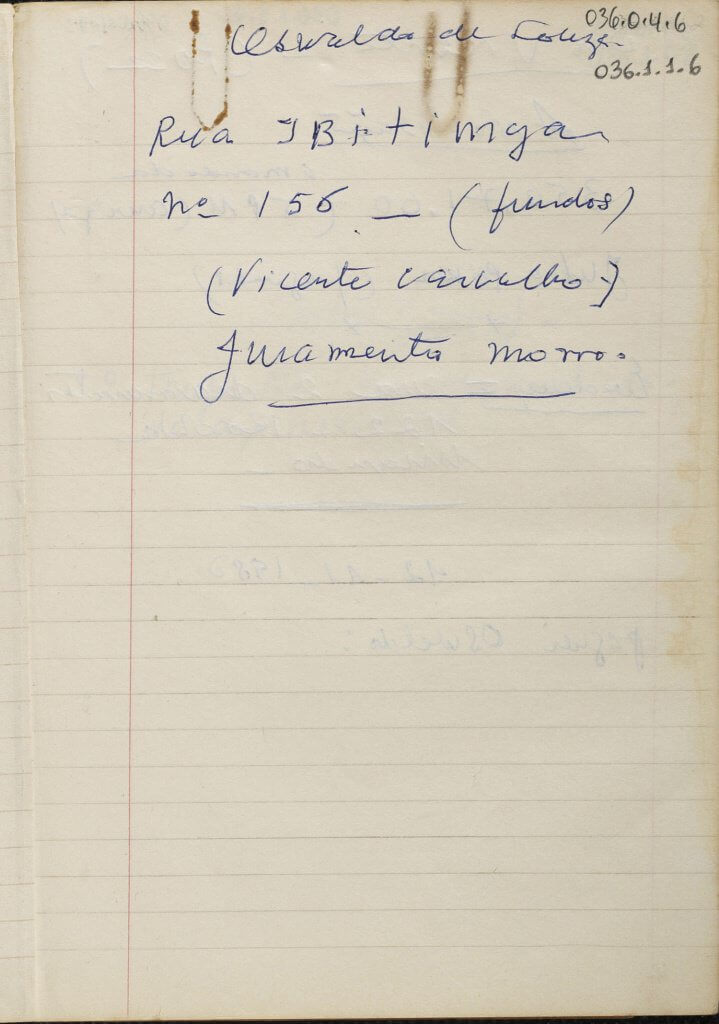 036.0.4.6
Oswaldo de Souza
036.1.1.6
Rua IBitinga
nº 156 — (fundos)
(Vicente Carvalho)
Juramento morro.